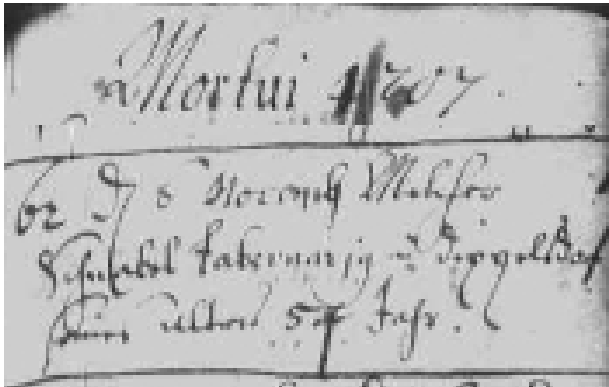 Mortui 1707.
62 D 8 Novemb Melcher
Schnabel tabernarij Zu Deppelsdorf
seines alters 57 Jahr.